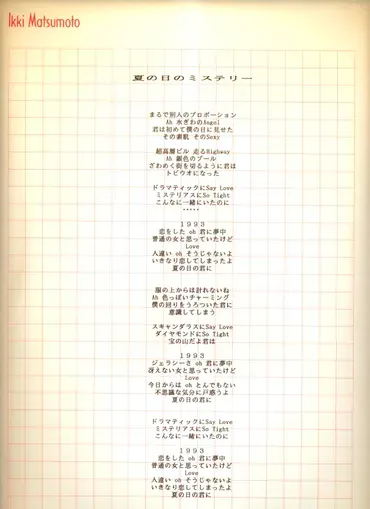 Ikki Matsumoto
夏の日のミステリー
まるで別人のプロポーション
Ah 水ぎわのAngel
君は初めて僕の目に見せた
その素肌 そのSexy
超高層ビル 走るHighway
Ah 銀色のプール
ざわめく街を切るように君は
トビウオになった
ドラマティックにSay Love
ミステリアスにSo Tight
こんなに一緒にいたのに
・・・・・
１９９３
恋をした oh 君に夢中
普通の女と思っていたけど
Love
人違い oh そうじゃないよ
いきなり恋してしまったよ
夏の日の君に
服の上からは計れないね
Ah 色っぽいチャーミング
僕の回りをうろついた君に
意識してしまう
スキャンダラスにSay Love
ダイヤモンドにSo Tight
宝の山だよ君は
１９９３
ジェラシーさ oh 君に夢中
冴えない女と思っていたけど
Love
今日からは oh とんでもない
不思議な気分に戸惑うよ
夏の日の君に
ドラマティックにSay Love
ミステリアスにSo Tight
こんなに一緒にいたのに
１９９３
恋をした oh 君に夢中
普通の女と思っていたけど
Love
人違い oh そうじゃないよ
いきなり恋してしまったよ
夏の日の君に